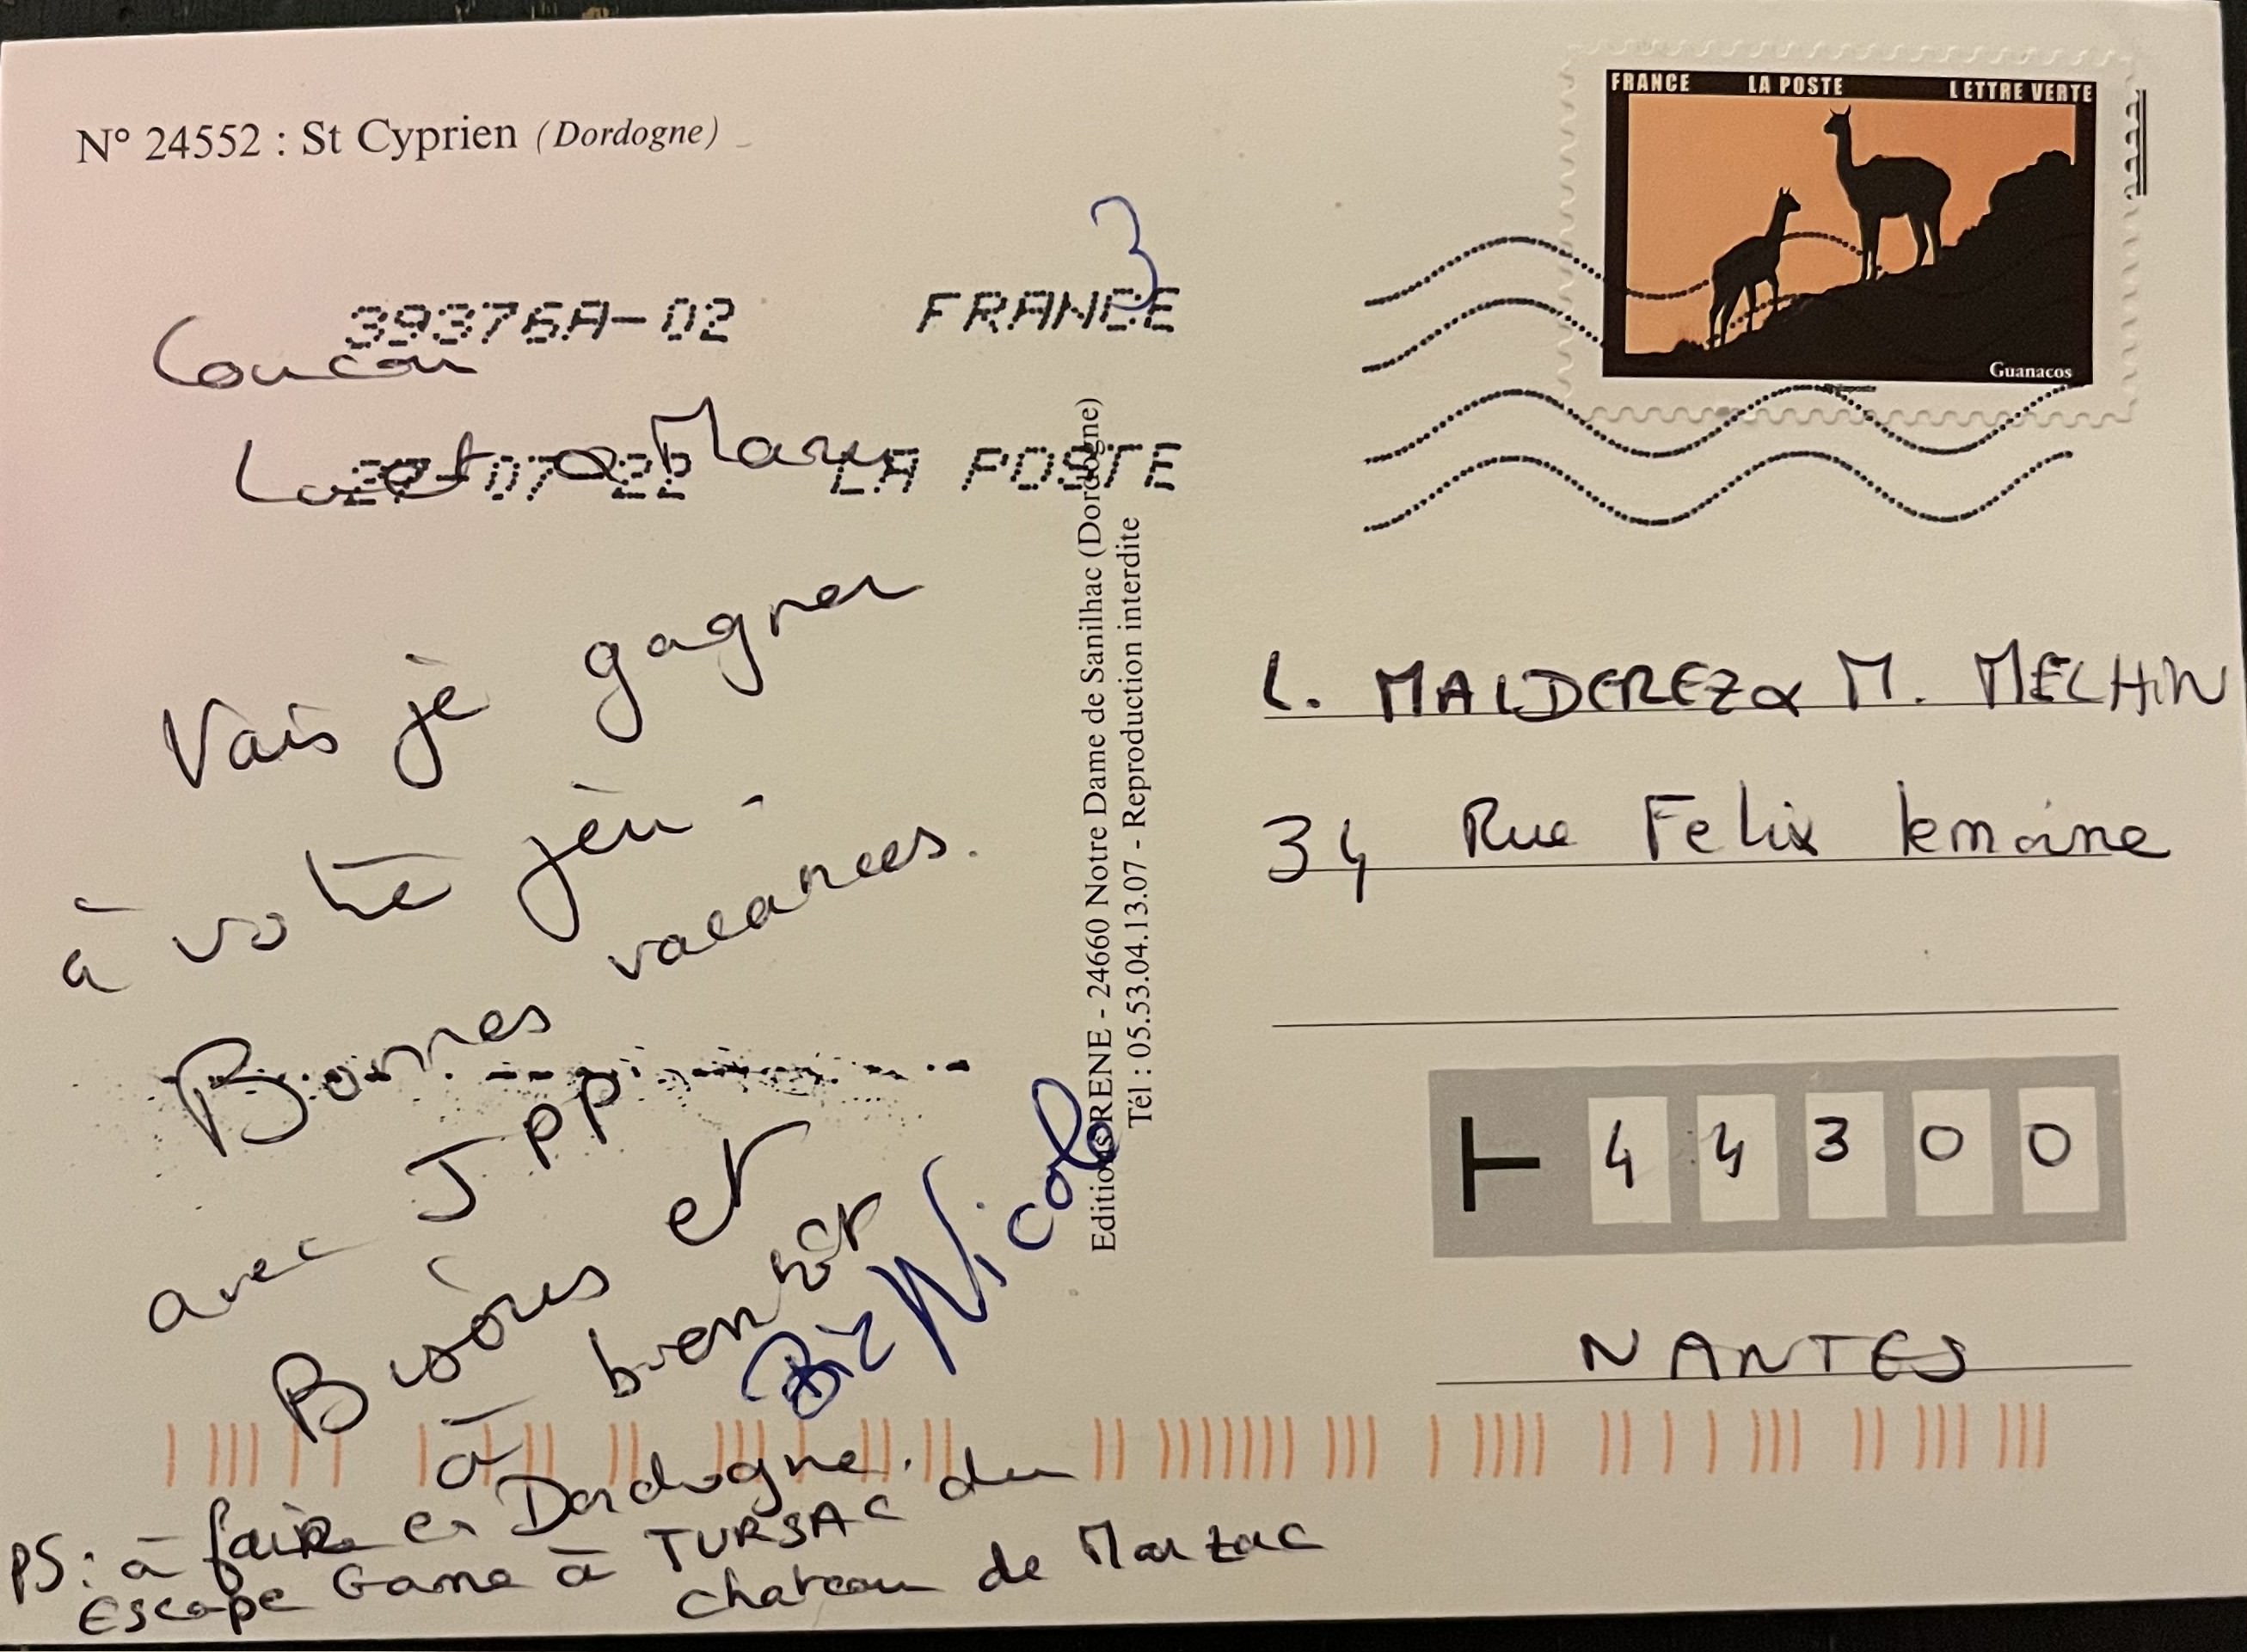 N° 24552 : St Cyprien (Dordogne)
FRANCE LA POSTE LETTRE VERTE
Guanacos
3
39376A-02 FRANCE
07-22 LA POSTE
Coucou
& Mary
Vais je gagner
à votre jeu.
Bonnes vacances.
avec JPP
Bisous et
à bientôt
Biz Nicole
PS: à faire en Dordogne.
Escape Game à TURSAC du
chateau de Marzac
Editions RENE - 24660 Notre Dame de Sanilhac (Dordogne)
Tél : 05.53.04.13.07 - Reproduction interdite
L. MALDEREZ & M. MELHIN
34 Rue Felix lemoine
44300
NANTES